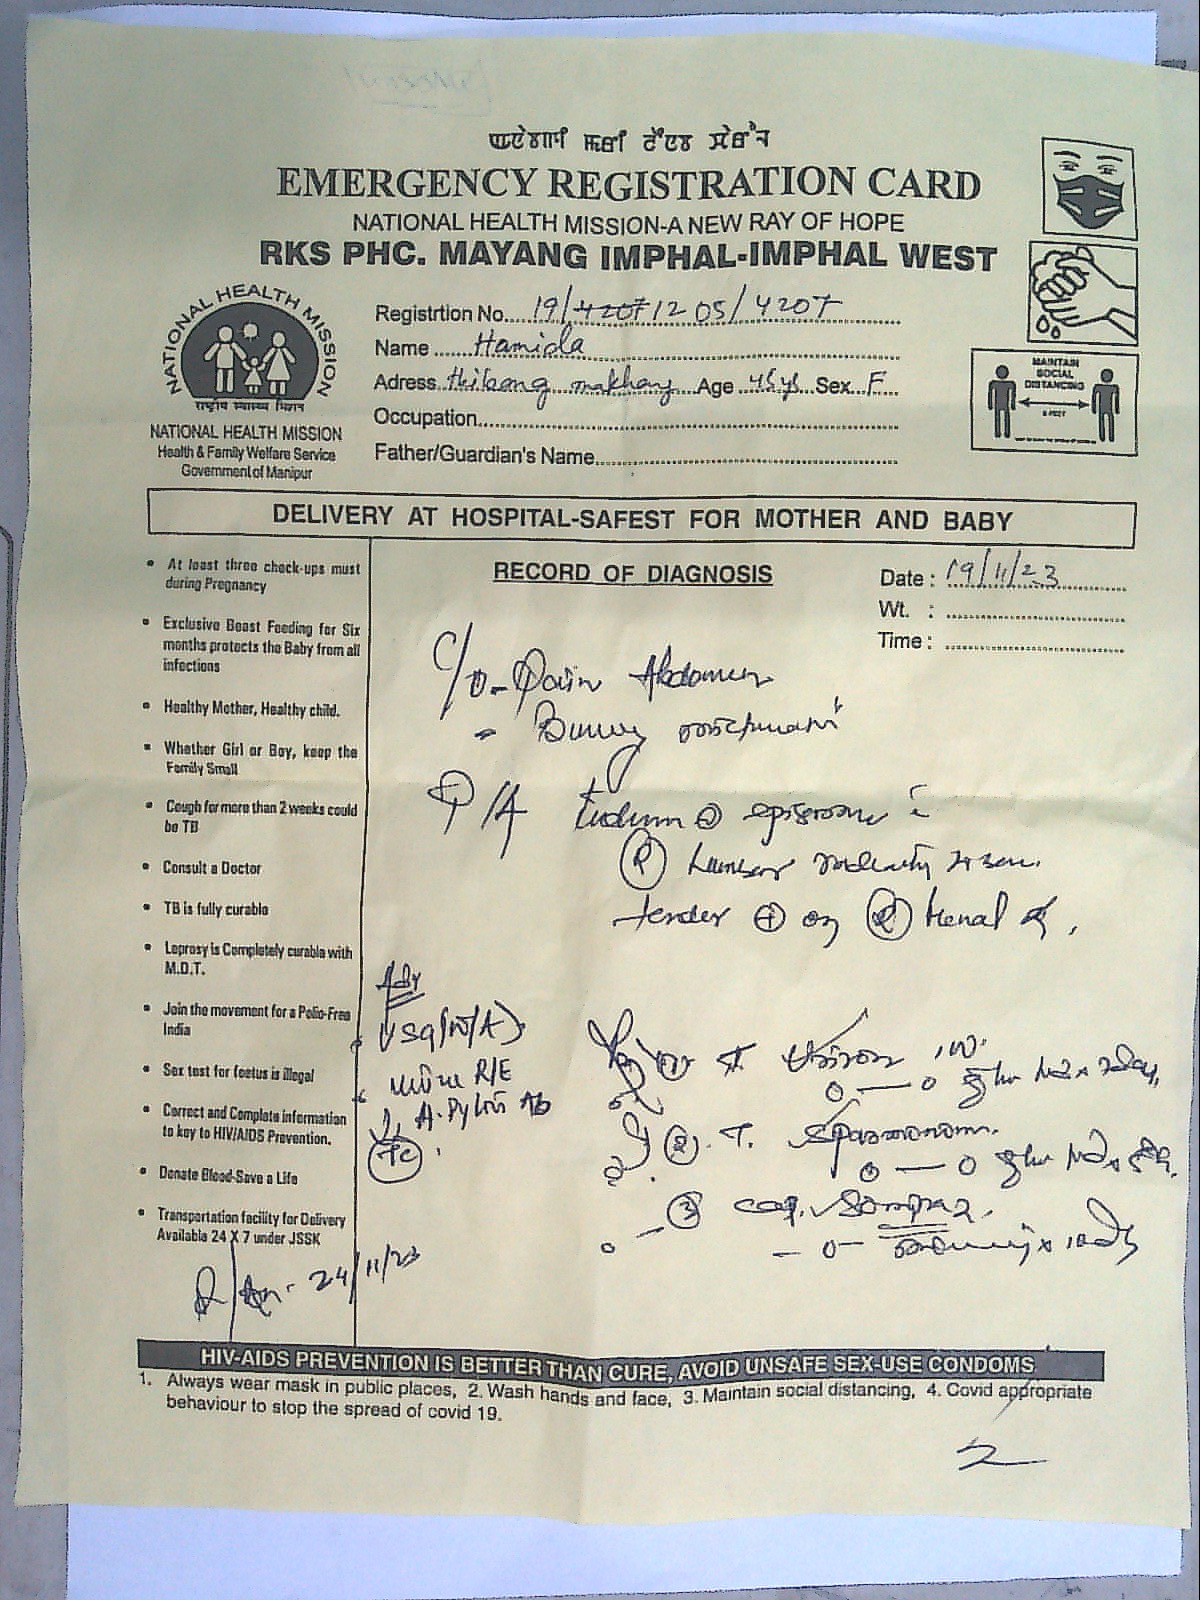 EMERGENCY REGISTRATION CARD
NATIONAL HEALTH MISSION-A NEW RAY OF HOPE
RKS PHC. MAYANG IMPHAL-IMPHAL WEST
NATIONAL HEALTH MISSION
राष्ट्रीय स्वास्थ्य मिशन
NATIONAL HEALTH MISSION
Health & Family Welfare Service
Government of Manipur
Registrtion No. 19/4207 12 05/4207
Name Hamida
Adress Age 45 ys Sex F
Occupation
Father/Guardian's Name
MAINTAIN
SOCIAL
DISTANCING
DELIVERY AT HOSPITAL-SAFEST FOR MOTHER AND BABY
• At least three check-ups must
during Pregnancy
• Exclusive Beast Feeding for Six
months protects the Baby from all
infections
• Healthy Mother, Healthy child.
• Whether Girl or Boy, keep the
Family Small
• Cough for more than 2 weeks could
be TB
• Consult a Doctor
• TB is fully curable
• Leprosy is Completely curable with
M.D.T.
• Join the movement for a Polio-Free
India
• Sex test for foetus is illegal
• Correct and Complete information
to key to HIV/AIDS Prevention.
• Donate Blood-Save a Life
• Transportation facility for Delivery
Available 24 X 7 under JSSK
24/11/23
RECORD OF DIAGNOSIS
Date : 19/11/23
Wt. :
Time :
C/O - Pain Abdomen
- Burning
P/A
(R) Lumbar
tender (+) on (R) Renal
Adv
USG (W/A)
Urine R/E
H. Pylori Ab
1 T.
2. T. Spasmonom.
3 Cap. Sompraz.
HIV-AIDS PREVENTION IS BETTER THAN CURE, AVOID UNSAFE SEX-USE CONDOMS
1. Always wear mask in public places, 2. Wash hands and face, 3. Maintain social distancing, 4. Covid appropriate
behaviour to stop the spread of covid 19.